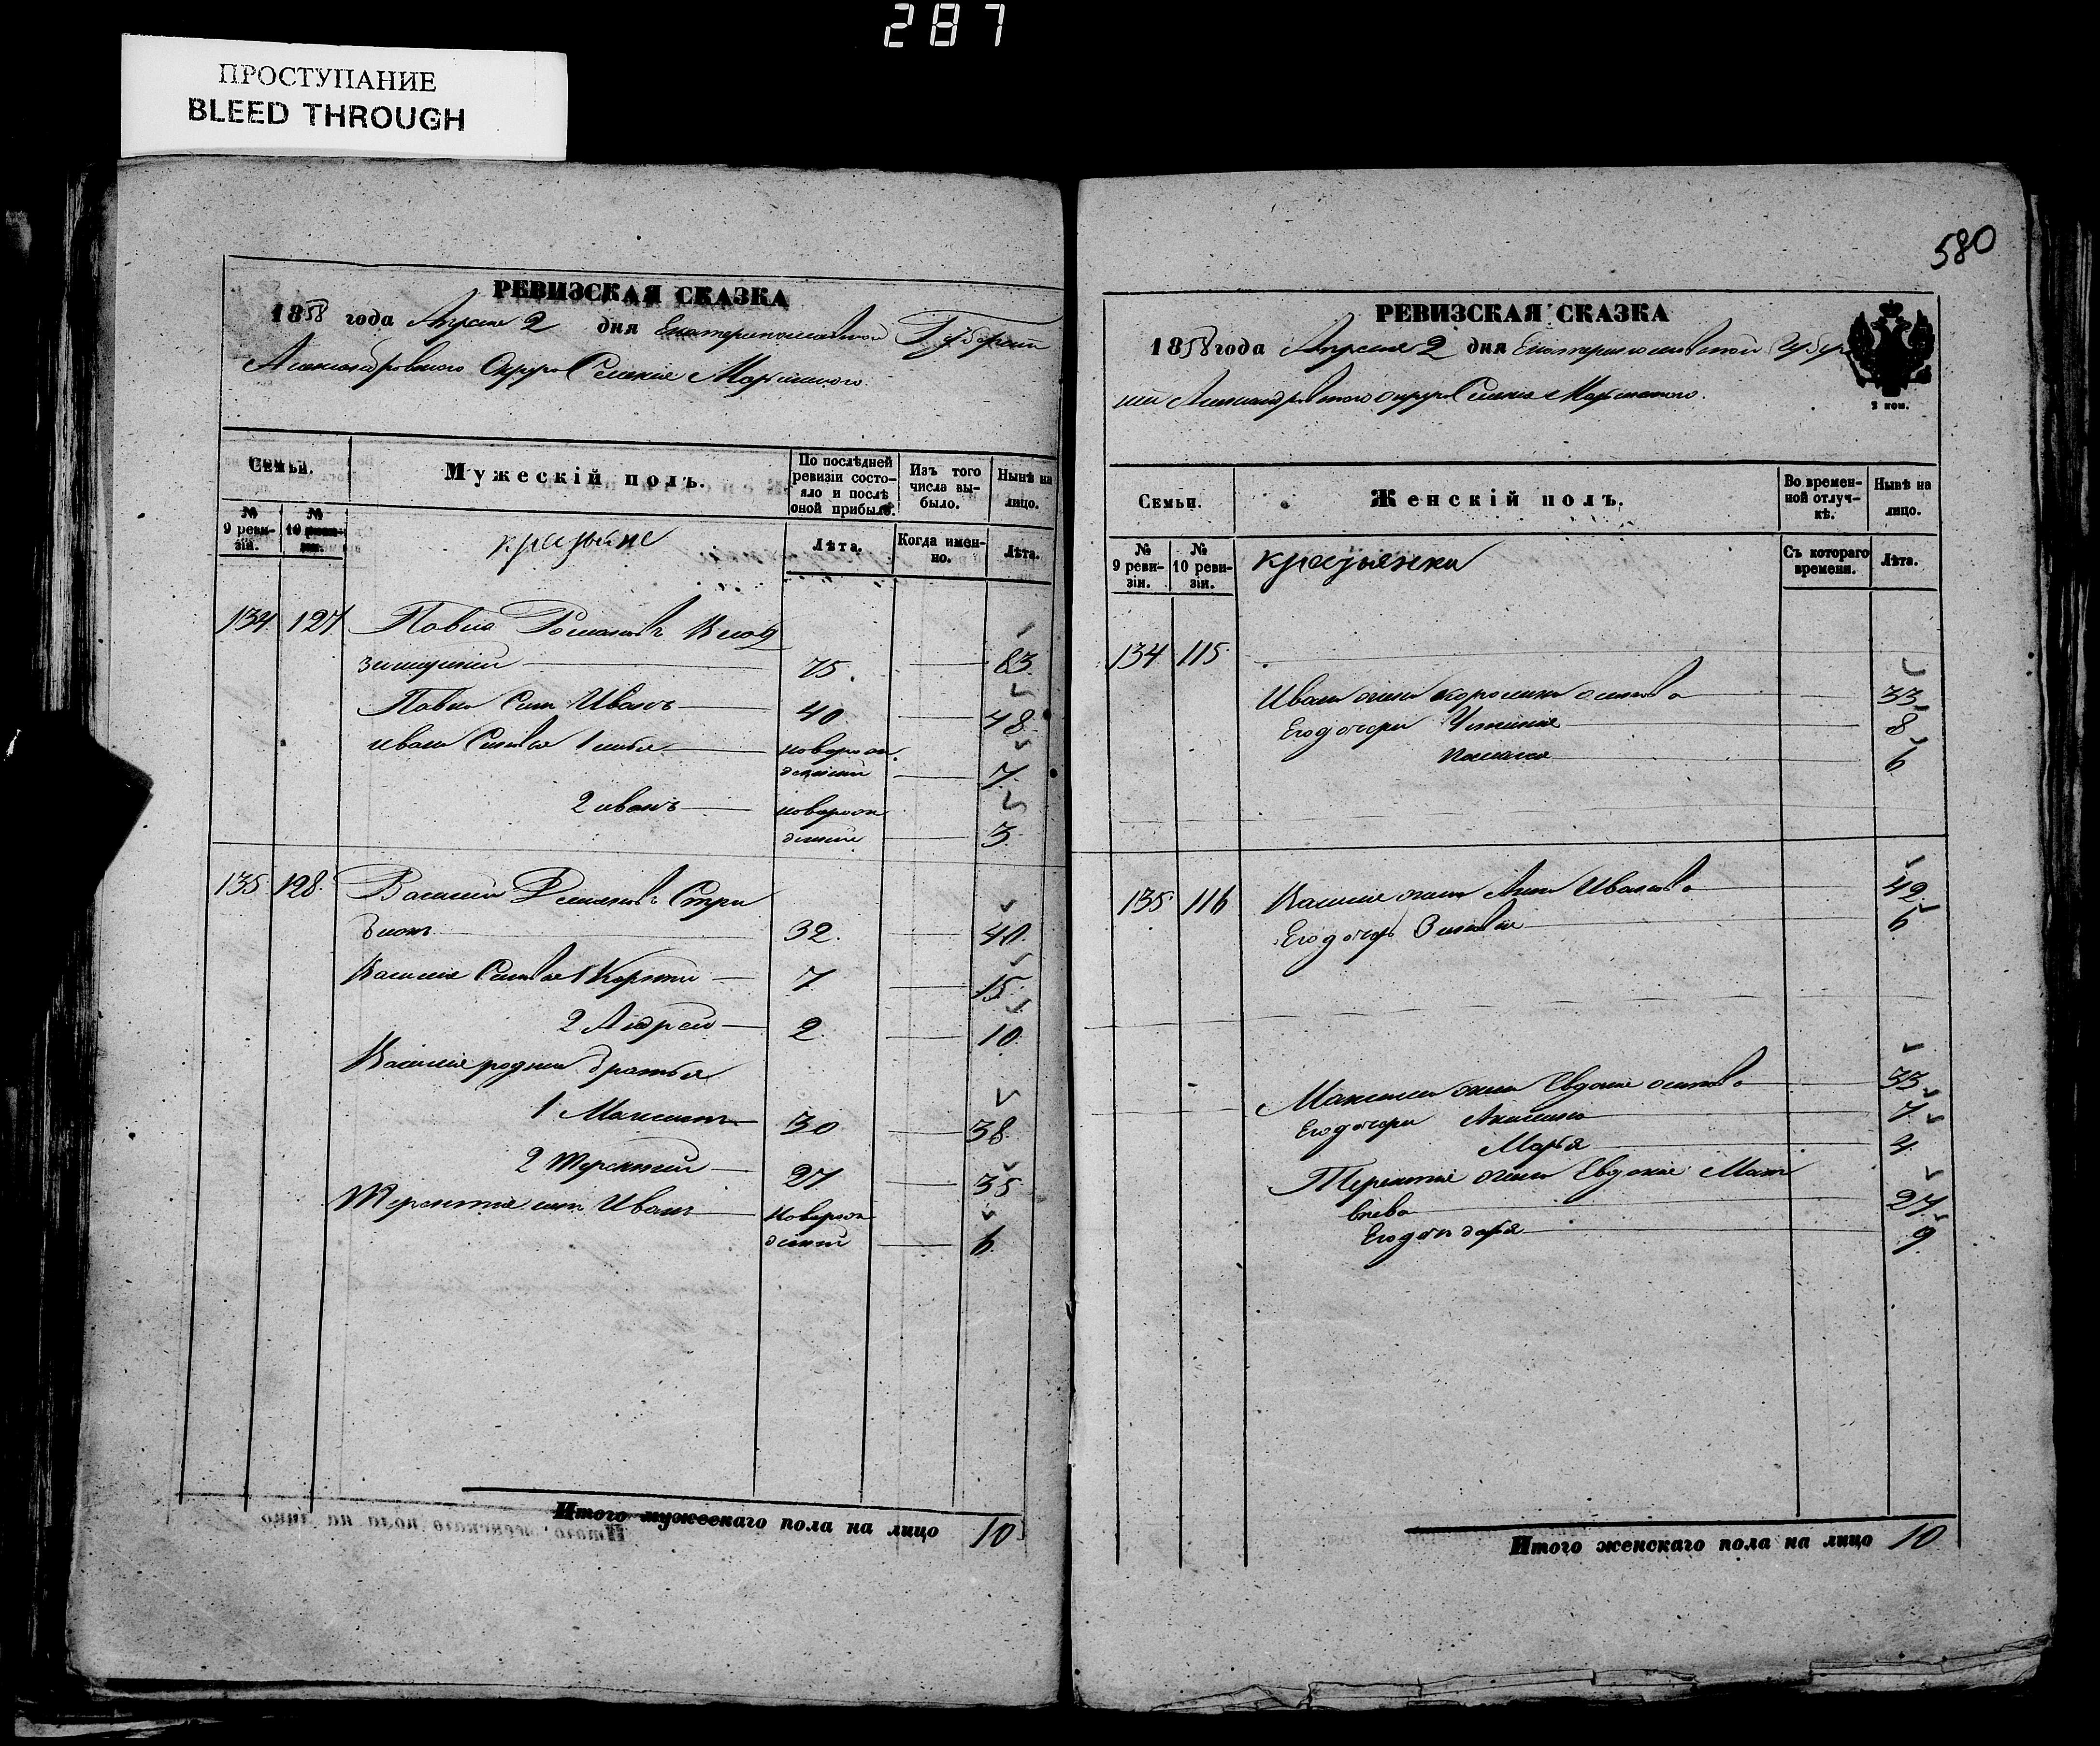 287
ПРОСТУПАНИЕ
BLEED THROUGH
РЕВИЗСКАЯ СКАЗКА
1858 года Апреля 2 дня Екатеринославской Губернии
Александровского Округа Селения Марьинского.
Семьи.
Мужескій полъ.
По послѣдней ревизіи состояло и послѣ оной прибыло.
Изъ того числа выбыло.
Нынѣ на лицо.
№ 9 ревизіи.
№ 10 ревизіи.
Лѣта.
Когда именно.
Лѣта.
134 127 Павло Романовъ
75. 83.
Павла Сынъ Иванъ 40 48
Ивана Сыновья 1 новорож
денный 7.
2 иванъ новорож
денный 3.
135 128. Василий Стри
32. 40.
Василия Сыновья 1 7 15
2 Андрей 2 10
Василия родные братья
1 Максимъ 30 38
2 Терентий 27 35
Терентия сынъ Иванъ новорож
денный 6
Итого мужескаго пола на лицо 10
580
РЕВИЗСКАЯ СКАЗКА
1858 года Апреля 2 дня Екатеринославской Губер
нии Александровского округа Селения Марьинского.
2 коп.
Семьи.
Женскій полъ.
Во временной отлучкѣ.
Нынѣ на лицо.
№ 9 ревизіи.
№ 10 ревизіи.
Съ котораго времени.
Лѣта.
134 115
Ивана жена осипова 33
Его дочери 8
6
135 116 Василия жена Анна Иванова 42
Его дочь Зиновия 6
Максима жена Евдокия осипова 33
Его дочери Акилина 7
Марья 4
Терентия жена Евдокия Мат
веева 27
Его дочь дарья 9
Итого женскаго пола на лицо 10